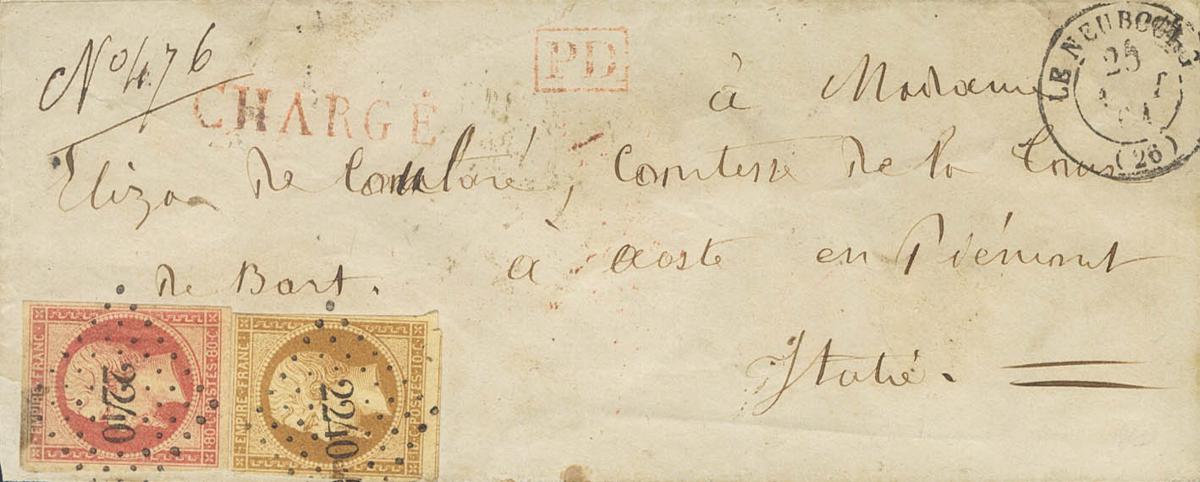 No 476
CHARGÉ
PD
LE NEUBOURG
25
(26)
à Madame
Eliza de , Comtesse de la
de Bart.
à Aoste en Piémont
Italie.
EMPIRE FRANC
80 C POSTES 80 C
2240
EMPIRE FRANC
10 C POSTES 10 C
2240